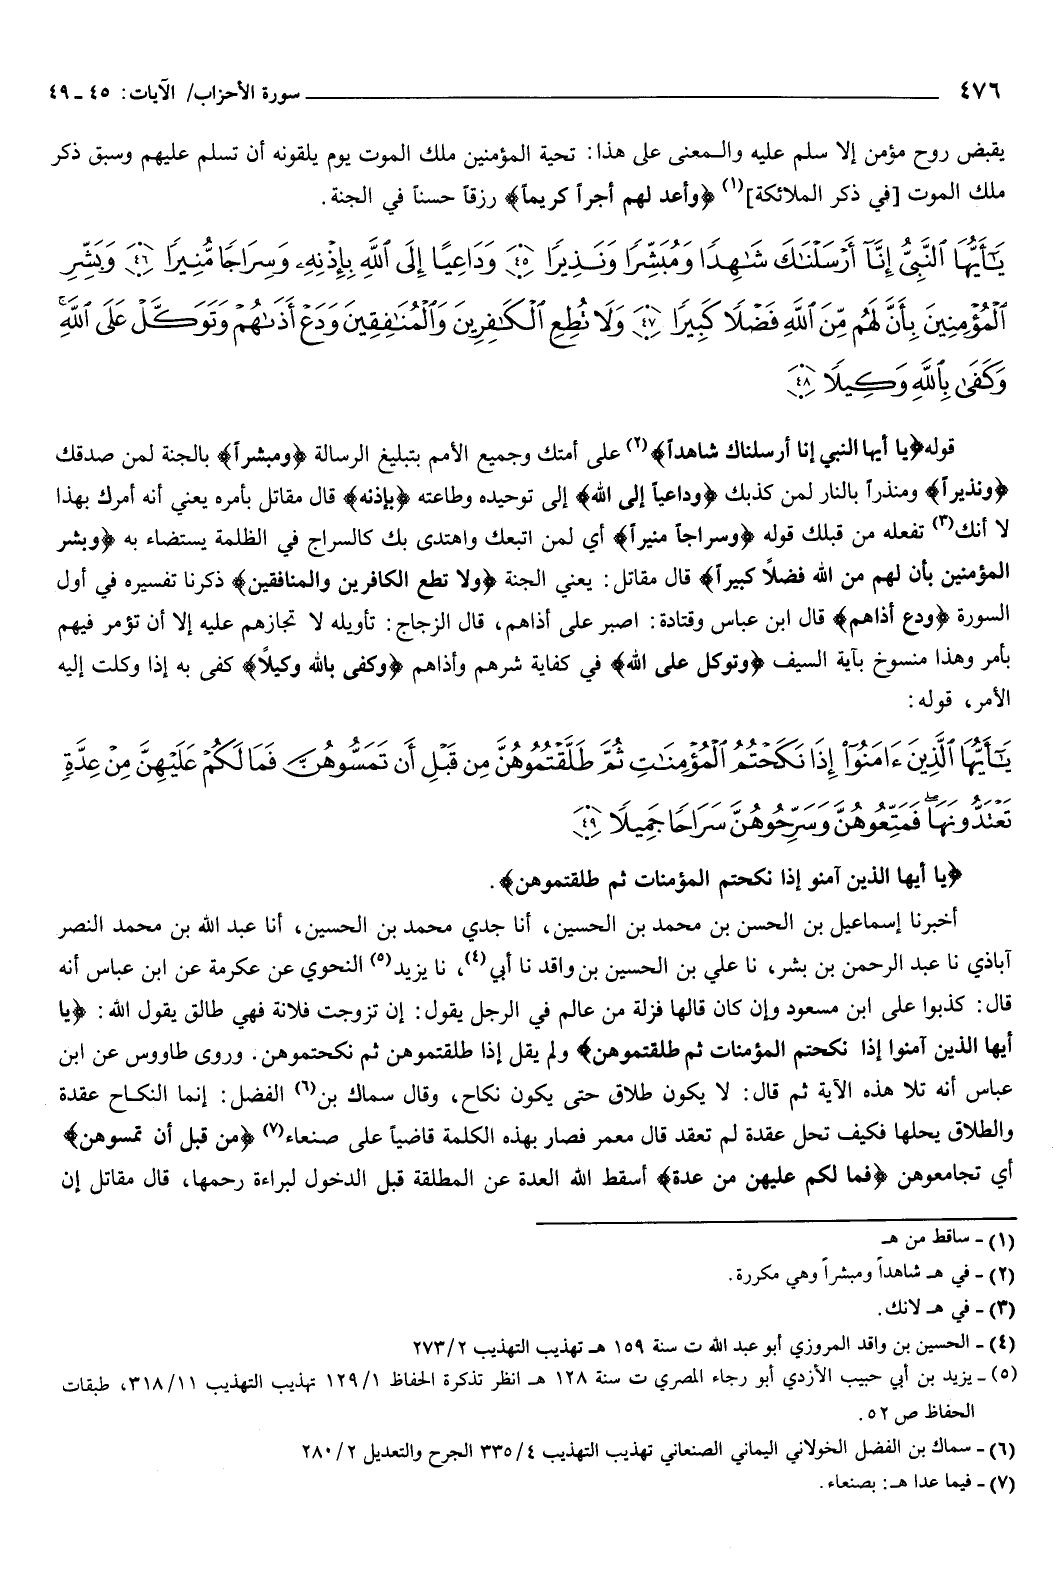 ٤٧٦ سورة الأحزاب/ الآيات: ٤٥ ـ ٤٩
يقبض روح مؤمن إلا سلم عليه والـمعنى على هذا: تحية المؤمنين ملك الموت يوم يلقونه أن تسلم عليهم وسبق ذكر
ملك الموت [في ذكر الملائكة](١) ﴿وأعد لهم أجراً كريماً﴾ رزقاً حسناً في الجنة.
يَٰٓأَيُّهَا ٱلنَّبِىُّ إِنَّآ أَرْسَلْنَٰكَ شَٰهِدًا وَمُبَشِّرًا وَنَذِيرًا ﴿٤٥﴾ وَدَاعِيًا إِلَى ٱللَّهِ بِإِذْنِهِۦ وَسِرَاجًا مُّنِيرًا ﴿٤٦﴾ وَبَشِّرِ
ٱلْمُؤْمِنِينَ بِأَنَّ لَهُم مِّنَ ٱللَّهِ فَضْلًا كَبِيرًا ﴿٤٧﴾ وَلَا تُطِعِ ٱلْكَٰفِرِينَ وَٱلْمُنَٰفِقِينَ وَدَعْ أَذَىٰهُمْ وَتَوَكَّلْ عَلَى ٱللَّهِۚ
وَكَفَىٰ بِٱللَّهِ وَكِيلًا ﴿٤٨﴾
قوله﴿يا أيها النبي إنا أرسلناك شاهداً﴾(٢) على أمتك وجميع الأمم بتبليغ الرسالة ﴿ومبشراً﴾ بالجنة لمن صدقك
﴿ونذيراً﴾ ومنذراً بالنار لمن كذبك ﴿وداعياً إلى الله﴾ إلى توحيده وطاعته ﴿بإذنه﴾ قال مقاتل بأمره يعني أنه أمرك بهذا
لا أنك(٣) تفعله من قبلك قوله ﴿وسراجاً منيراً﴾ أي لمن اتبعك واهتدى بك كالسراج في الظلمة يستضاء به ﴿وبشر
المؤمنين بأن لهم من الله فضلاً كبيراً﴾ قال مقاتل: يعني الجنة ﴿ولا تطع الكافرين والمنافقين﴾ ذكرنا تفسيره في أول
السورة ﴿ودع أذاهم﴾ قال ابن عباس وقتادة: اصبر على أذاهم، قال الزجاج: تأويله لا تجازهم عليه إلا أن تؤمر فيهم
بأمر وهذا منسوخ بآية السيف ﴿وتوكل على الله﴾ في كفاية شرهم وأذاهم ﴿وكفى بالله وكيلاً﴾ كفى به إذا وكلت إليه
الأمر، قوله:
يَٰٓأَيُّهَا ٱلَّذِينَ ءَامَنُوٓا۟ إِذَا نَكَحْتُمُ ٱلْمُؤْمِنَٰتِ ثُمَّ طَلَّقْتُمُوهُنَّ مِن قَبْلِ أَن تَمَسُّوهُنَّ فَمَا لَكُمْ عَلَيْهِنَّ مِنْ عِدَّةٍ
تَعْتَدُّونَهَاۖ فَمَتِّعُوهُنَّ وَسَرِّحُوهُنَّ سَرَاحًا جَمِيلًا ﴿٤٩﴾
﴿يا أيها الذين آمنو إذا نكحتم المؤمنات ثم طلقتموهن﴾.
أخبرنا إسماعيل بن الحسن بن محمد بن الحسين، أنا جدي محمد بن الحسين، أنا عبد الله بن محمد النصر
آباذي نا عبد الرحمن بن بشر، نا علي بن الحسين بن واقد نا أبي(٤)، نا يزيد(٥) النحوي عن عكرمة عن ابن عباس أنه
قال: كذبوا على ابن مسعود وإن كان قالها فزلة من عالم في الرجل يقول: إن تزوجت فلانة فهي طالق يقول الله: ﴿يا
أيها الذين آمنوا إذا نكحتم المؤمنات ثم طلقتموهن﴾ ولم يقل إذا طلقتموهن ثم نكحتموهن. وروى طاووس عن ابن
عباس أنه تلا هذه الآية ثم قال: لا يكون طلاق حتى يكون نكاح، وقال سماك بن(٦) الفضل: إنما النكاح عقدة
والطلاق يحلها فكيف تحل عقدة لم تعقد قال معمر فصار بهذه الكلمة قاضياً على صنعاء(٧) ﴿من قبل أن تمسوهن﴾
أي تجامعوهن ﴿فما لكم عليهن من عدة﴾ أسقط الله العدة عن المطلقة قبل الدخول لبراءة رحمها، قال مقاتل إن
(١) ـ ساقط من هـ
(٢) ـ في هـ شاهداً ومبشراً وهي مكررة.
(٣) ـ في هـ لانك.
(٤) ـ الحسين بن واقد المروزي أبو عبد الله ت سنة ١٥٩ هـ تهذيب التهذيب ٢/ ٢٧٣
(٥) ـ يزيد بن أبي حبيب الأزدي أبو رجاء المصري ت سنة ١٢٨ هـ انظر تذكرة الحفاظ ١/ ١٢٩ تهذيب التهذيب ١١/ ٣١٨، طبقات
الحفاظ ص ٥٢.
(٦) ـ سماك بن الفضل الخولاني اليماني الصنعاني تهذيب التهذيب ٤/ ٣٣٥ الجرح والتعديل ٢/ ٢٨٠
(٧) ـ فيما عدا هـ: بصنعاء.